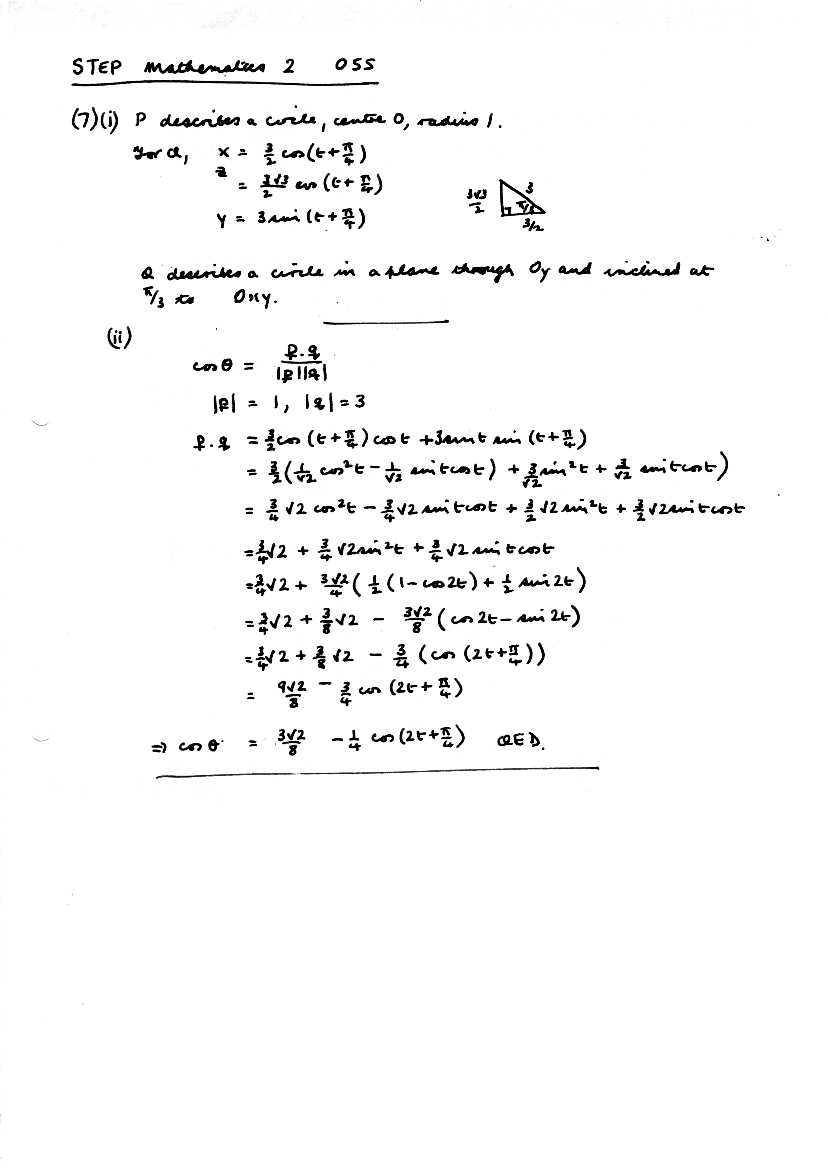 STEP Mathematics 2 05S
(7)(i) P describes a circle, centre O, radius 1.
For Q, x = 3/2 cos(t + π/4)
z = 3√3/2 cos(t + π/4)
y = 3 sin(t + π/4)
3√3/2 3 π/3 3/2
Q describes a circle in a plane through Oy and inclined at
π/3 to Oxy.
(ii)
cos θ = p.q / |p||q|
|p| = 1, |q| = 3
p.q = 3/2 cos(t + π/4) cos t + 3 sin t sin(t + π/4)
= 3/2 (1/√2 cos²t − 1/√2 sin t cos t) + 3/√2 sin²t + 3/√2 sin t cos t)
= 3/4 √2 cos²t − 3/4 √2 sin t cos t + 3/2 √2 sin²t + 3/2 √2 sin t cos t
= 3/4 √2 + 3/4 √2 sin²t + 3/4 √2 sin t cos t
= 3/4 √2 + 3√2/4 ( 1/2 (1 − cos 2t) + 1/2 sin 2t)
= 3/4 √2 + 3/8 √2 − 3√2/8 (cos 2t − sin 2t)
= 3/4 √2 + 3/8 √2 − 3/4 (cos (2t + π/4))
= 9√2/8 − 3/4 cos (2t + π/4)
⇒ cos θ = 3√2/8 − 1/4 cos (2t + π/4) QED.